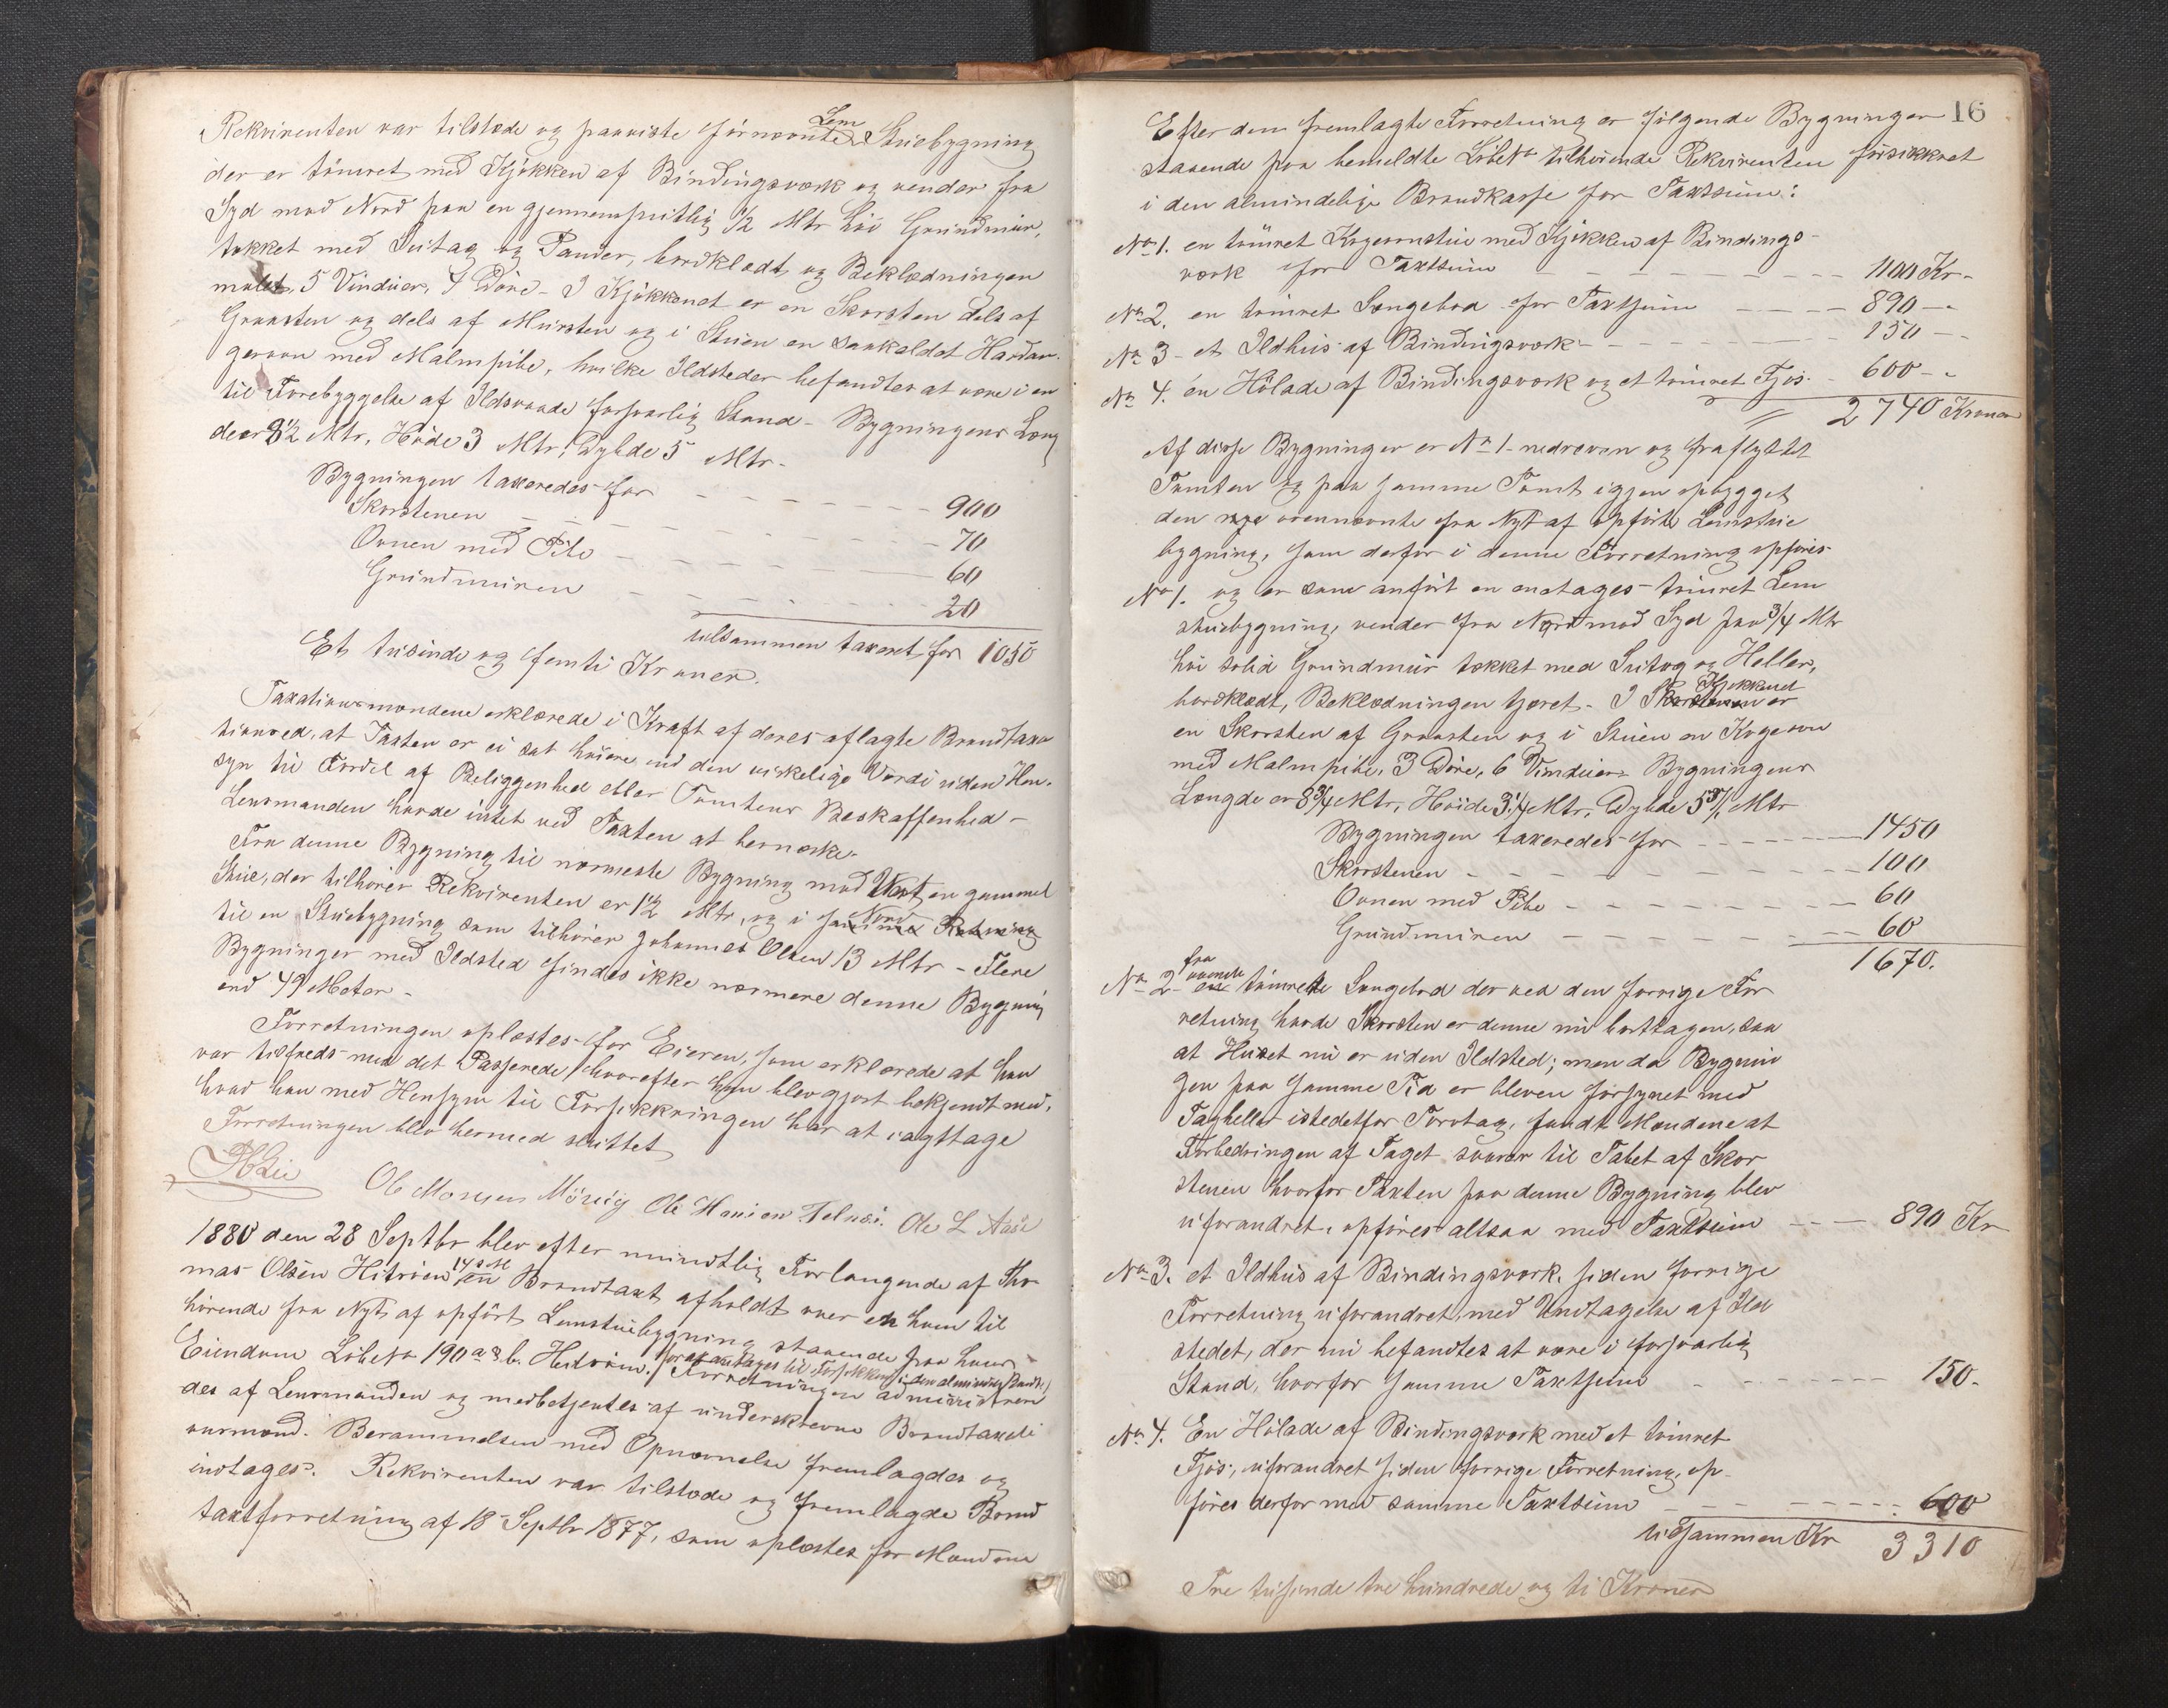 Rekvirenten var tilstede og paaviste førnævnte Lem Stuebygning
der er tømret med Kjøkken af Bindingsværk og vender fra
Syd mod Nord paa en gjennemsnitlig 1/2 Mtr høi Grundmur,
tækket med Sutag og Pander, bordklædt og Beklædningen
malet, 5 Vinduer, 4 Døre - I Kjøkkenet er en Skorsten dels af
Graasten og dels af Mursten og i Stuen en saakaldet Hardan-
gerovn med Malmpibe, hvilke Ildsteder befandtes at være i en
til Forebyggelse af Ildsvaade forsvarlig Stand - Bygningens Læng
de er 8 1/2 Mtr, Høide 3 Mtr, Dybde 5 Mtr -
Bygningen taxeredes for 900
Skorstenen 70
Ovnen med Pibe 60
Grundmuren 20
tilsammen taxeret for 1050
Et tusinde og femti Kroner.
Taxationsmændene erklærede i Kraft af deres aflagte Brandtaxa
tionsed, at Taxten er ei sat høiere end den virkelige Værdi uden Hen-
syn til Fordel af Beliggenhed eller Tomtens Beskaffenhed -
Lensmanden havde intet ved Taxten at bemærke.
Fra denne Bygning til nærmeste Bygning mod Vest, en gammel
Stue, der tilhører Rekvirenten er 1 1/2 Mtr, og i Nord
til en Stuebygning som tilhører Johannes Olsen 13 Mtr - Flere
Bygninger med Ildsted findes ikke nærmere denne Bygning
end 49 Meter -
Forretningen oplæstes for Eieren, som erklærede at han
var tilfreds med det Passerede, hvorefter han blev gjort bekjendt med,
hvad han med Hensyn til Forsikkringen har at iagttage
Forretningen blev hermed sluttet
Lie Ole Monsen Ole Hansen Ole L Aase
1880 den 28 Septbr blev efter mundtlig Forlangende af Tho-
mas Olsen Hitröen Brandtaxt afholdt over en ham til
hørende fra Nyt af opført Lemstuebygning staaende paa hans
Eiendom Løbe No 190 a & b. Forretningen administrere
des af Lensmanden og medbetjentes af underskrevne Brandtaxti
onsmænd. Berammelsen med Opnævnelse fremlagdes og
indtages. Rekvirenten var tilstede og fremlagde Brand
taxtforretning af 18 Septbr 1877, som oplæstes for Mændene
16
Efter den fremlagte Forretning er følgende Bygninger
staaende paa bemeldte Løbe No tilhørende Rekvirenten forsikkret
i den almindelige Brandkasse for Taxtsum:
No 1. en tømret Kogeovnstue med Kjøkken af Bindings-
værk for Taxtsum 1100 Kr -
No 2. en tømret Sængebod for Taxtsum 890 -
No 3 - et Ildhus af Bindingsværk 150 -
No 4. en Hølade af Bindingsværk og et tømret Fjøs 600 -
2740 Kroner
Af disse Bygninger er No 1 - nedreven og fraflyttet
Tomten og paa samme Tomt igjen opbygget
den nye ovennævnte fra Nyt af opførte Lemstue
bygning, som derfor i denne Forretning opføres
No 1. og er som anført en enetages tømret Lem
stuebygning, vender fra Nord mod Syd paa 3/4 Mtr
høi solid Grundmur tækket med Sutag og Heller,
bordklædt, Beklædningen tjæret - I Kjøkkenet er
en Skorsten af Graasten og i Stuen en Kogeovn
med Malmpibe, 3 Døre, 6 Vinduer - Bygningens
Længde er 8 3/4 Mtr, Høide 3 1/4 Mtr, Dybde 5 3/4 Mtr
Bygningen taxeredes for 1450
Skorstenen 100
Ovnen med Pibe 60
Grundmuren 60
1670.
No 2 - tømrede Sængebod der ved den forrige For
retning havde Skorsten er denne nu borttagen, saa
at Huset nu er uden Ildsted; men da Bygnin
gen paa samme Tid er bleven forsynet med
Tagheller istedetfor Torvtag, fandt Mændene at
Forbedringen af Taget svarer til Tabet af Skor
stenen hvorfor Taxten paa denne Bygning blev
uforandret, opføres altsaa med Taxtsum 890 Kr
No 3. et Ildhus af Bindingsværk, siden forrige
Forretning uforandret, med Undtagelse af Ild
stedet, der nu befandtes at være i forsvarlig
Stand, hvorfor samme Taxtsum 150 -
No 4. En Hølade af Bindingsværk med et tømret
Fjøs, uforandret siden forrige Forretning, op-
føres derfor med samme Taxtsum 600
tilsammen Kr 3310
Tre tusinde tre hundrede og ti Kroner